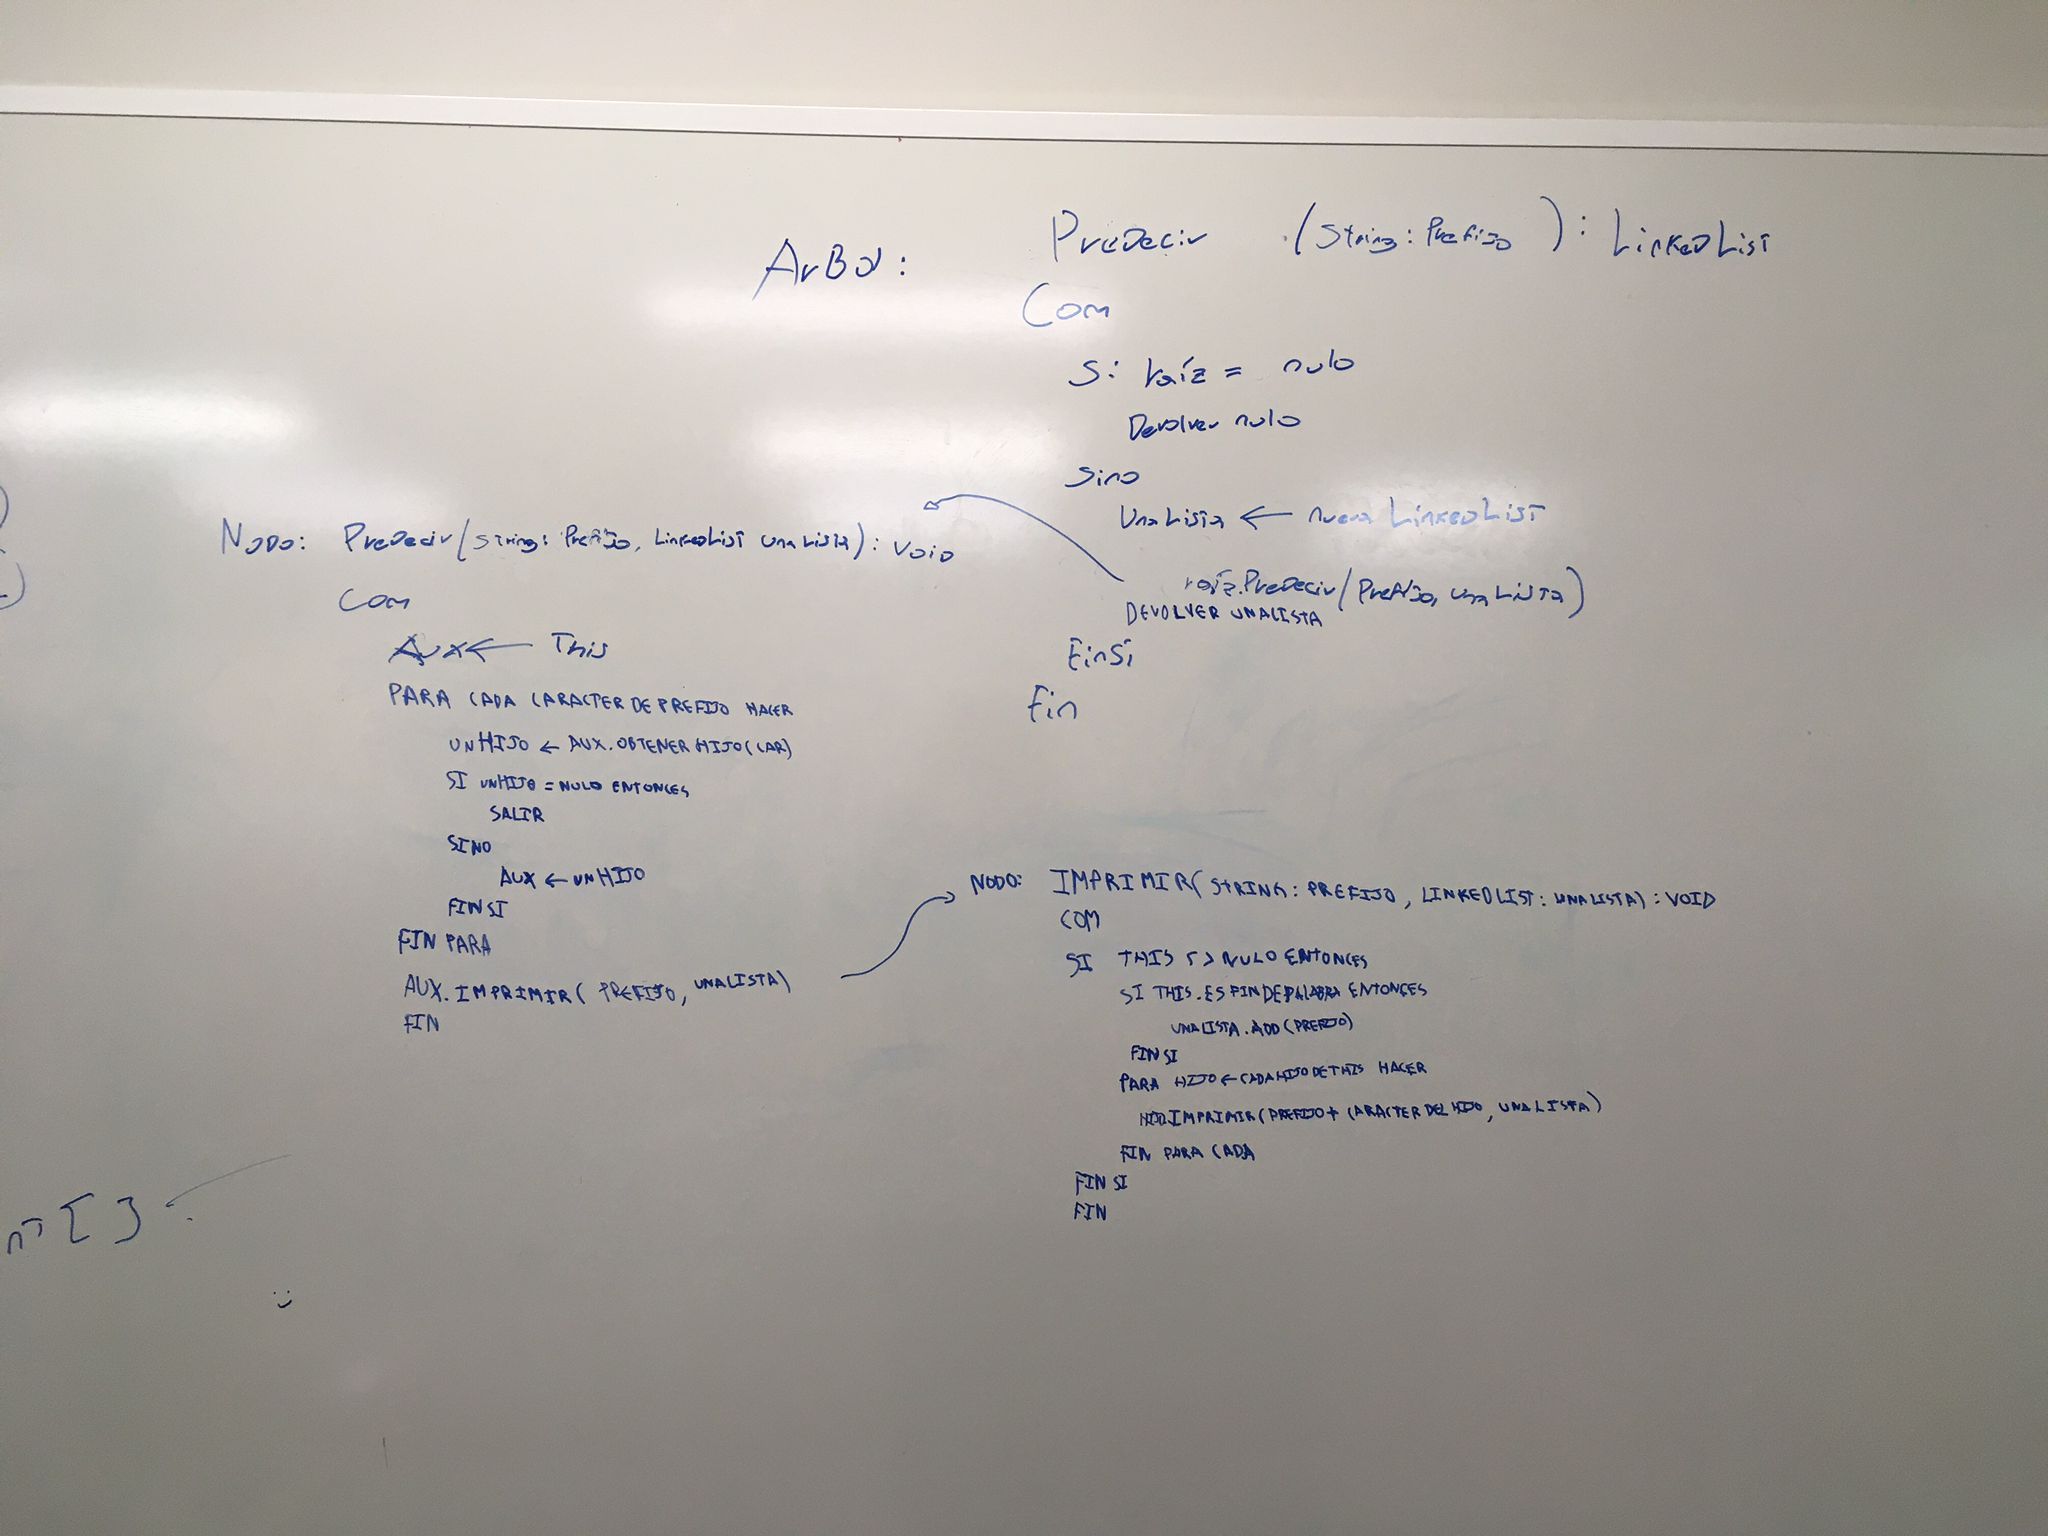 ArBol: PreDecir (String: Prefijo): LinkedList
Com
Si raíz = nulo
Devolver nulo
Sino
UnaLista ← nueva LinkedList
raíz.PreDecir(Prefijo, unaLista)
DEVOLVER UNALISTA
FinSi
Fin
NoDo: PreDecir(String: Prefijo, LinkedList unaLista): Void
Com
Aux ← This
PARA CADA CARACTER DE PREFIJO HACER
UNHIJO ← AUX.OBTENERHIJO(CAR)
SI UNHIJO = NULO ENTONCES
SALIR
SINO
AUX ← UNHIJO
FINSI
FIN PARA
AUX.IMPRIMIR( PREFIJO, UNALISTA)
FIN
NODO: IMPRIMIR(STRING: PREFIJO, LINKEDLIST: UNALISTA): VOID
COM
SI THIS <> NULO ENTONCES
SI THIS.ESFINDEPALABRA ENTONCES
UNALISTA.ADD(PREFIJO)
FINSI
PARA HIJO ← CADA HIJO DE THIS HACER
HIJO.IMPRIMIR(PREFIJO + CARACTER DEL HIJO, UNALISTA)
FIN PARA CADA
FINSI
FIN
[ ]